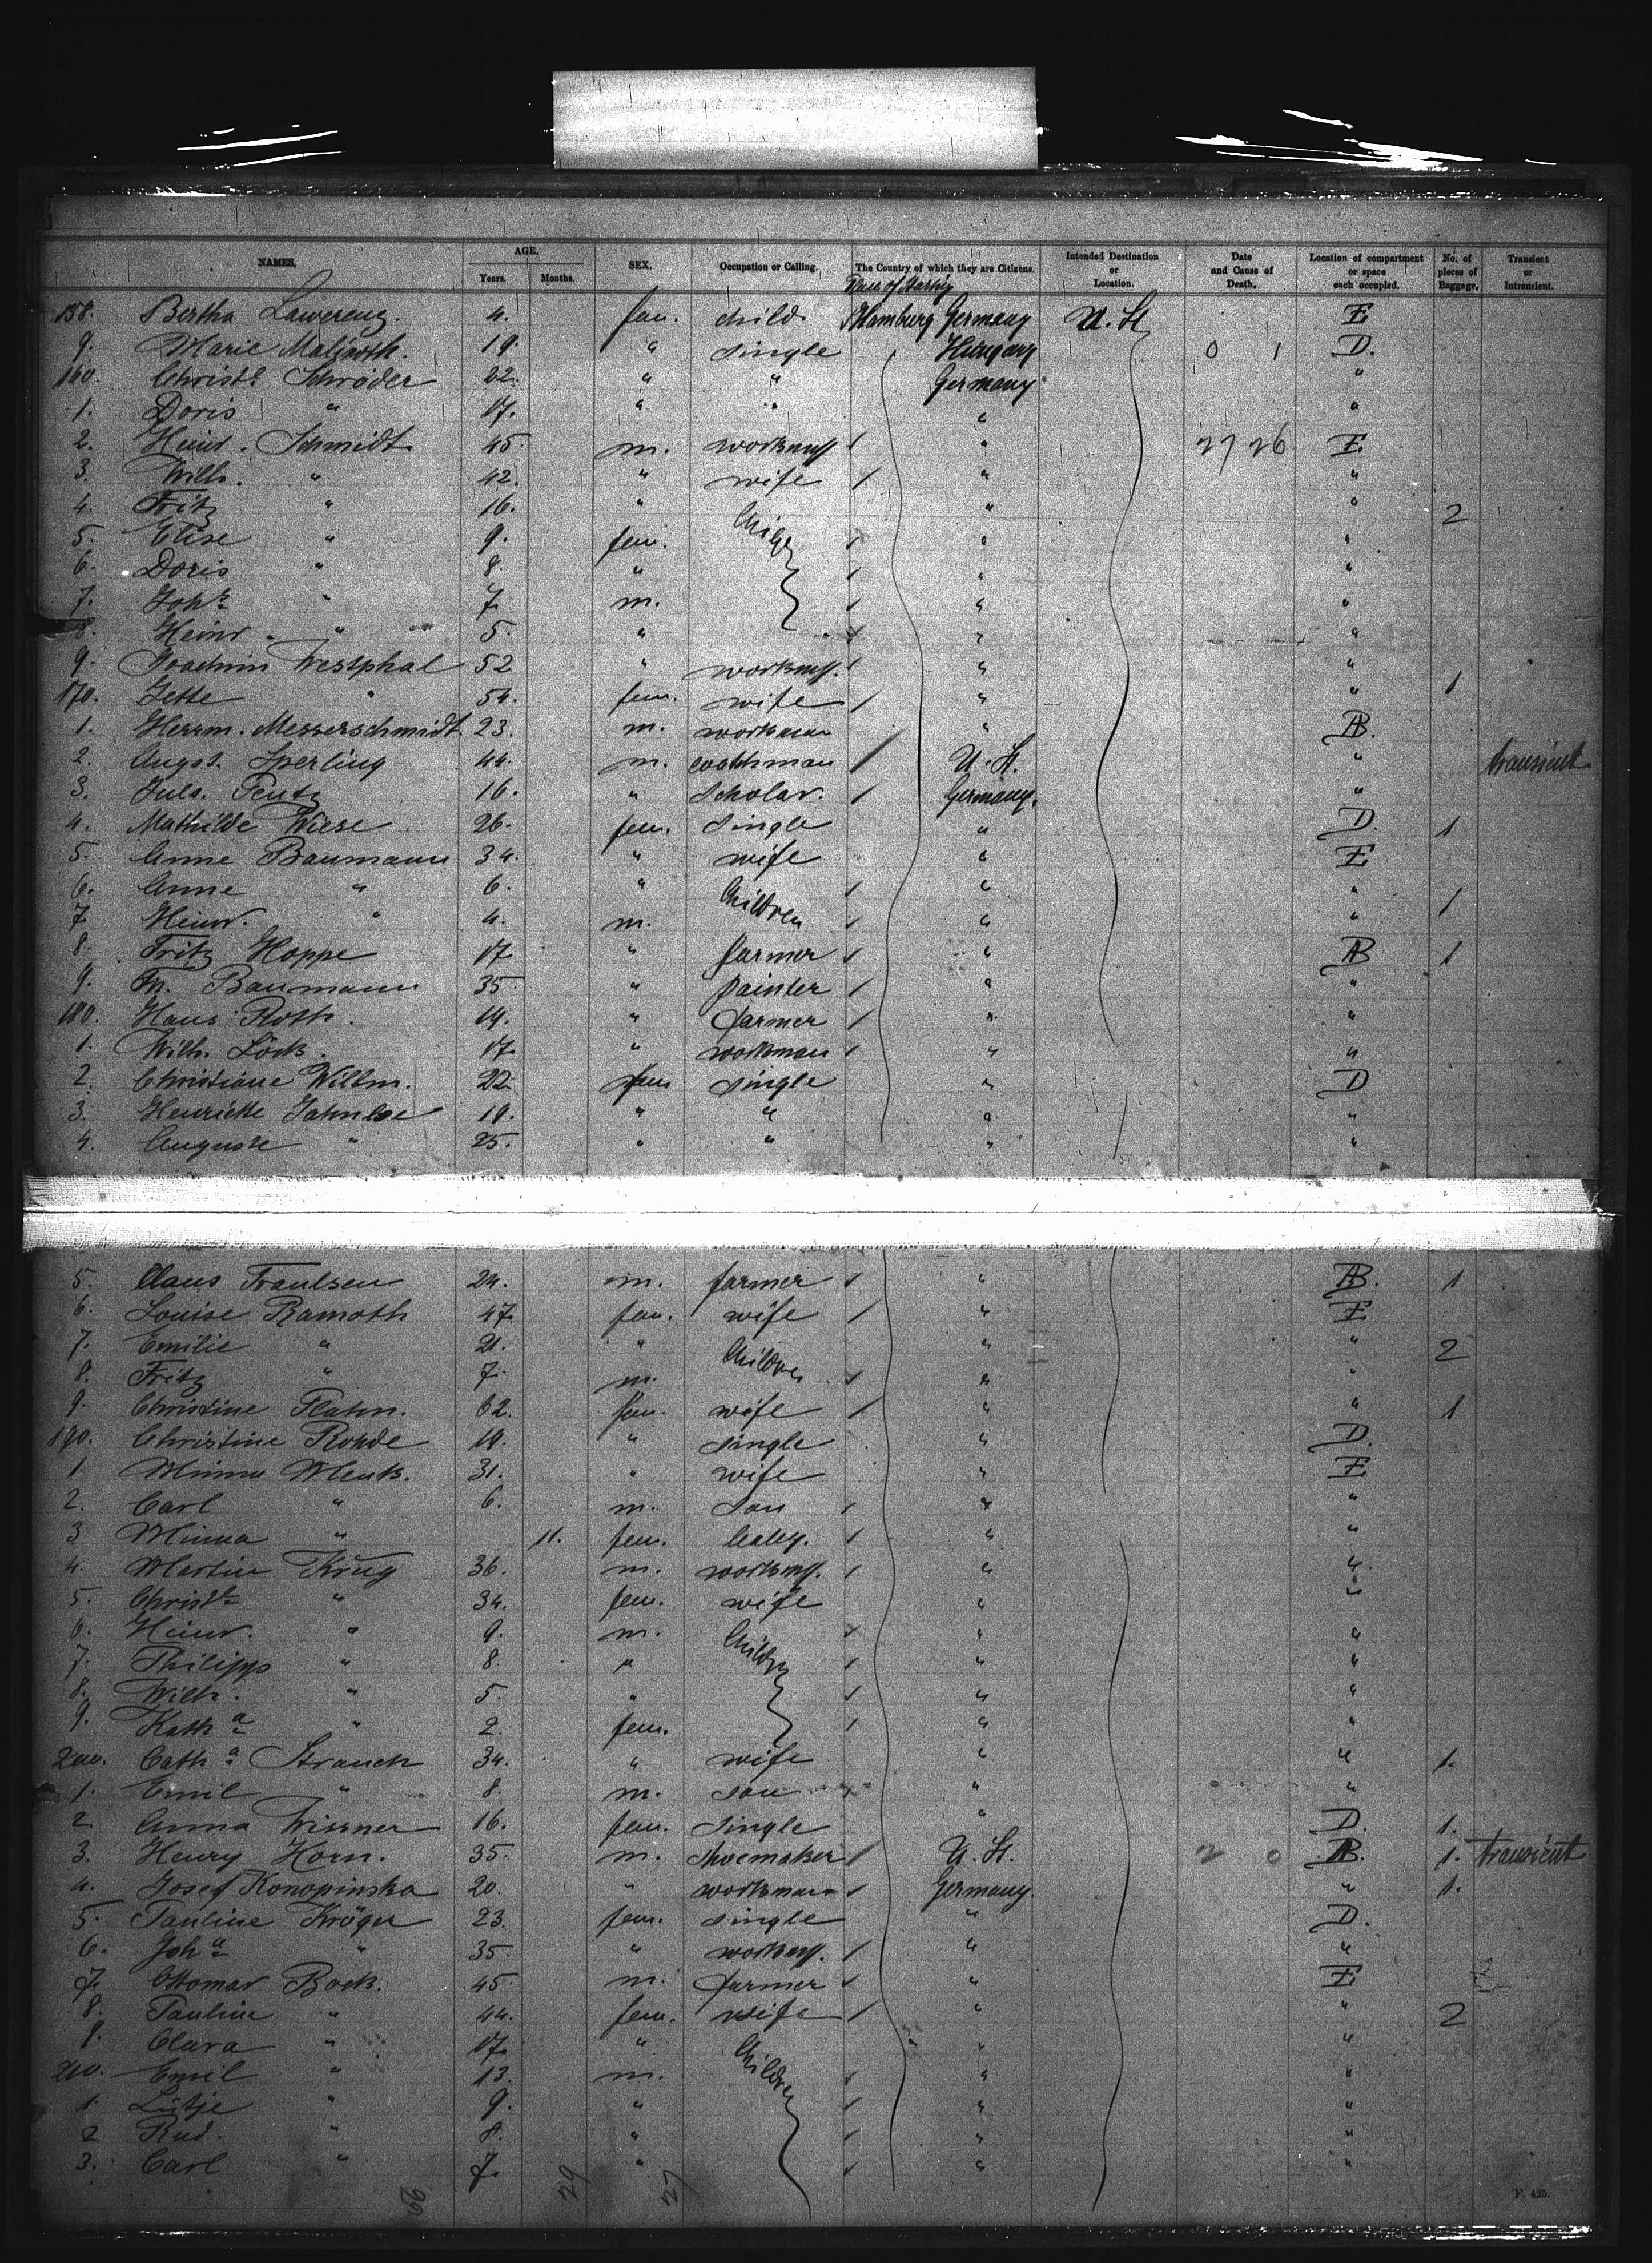 NAMES. AGE. Years. Months. SEX. Occupation or Calling. The Country of which they are Citizens. Intended Destination or Location. Date and Cause of Death. Location of compartment or space each occupied. No. of pieces of Baggage. Transient or Intransient.
158. Bertha Lawerenz. 4. fem. child. Hamburg Germany U. St. E
9. Marie 19. " single Hungary 0 1 D.
160. Christe Schröder 22. " " Germany "
1. Doris " 17. " " " "
2. Heinr. Schmidt 45. m. " 27 26 E
3. Wilh. " 42. " wife / " "
4. Fritz " 16. " " " 2
5. Elise " 9. fem. / " "
6. Doris " 8. " / " "
7. Johs " 7. m. / " "
8. Heinr. " 5. " / " "
9. Joachim Westphal 52 " / " "
170. Jette " 54. fem. wife / " " 1
1. Herrm. Messerschmidt. 23. m. workman " AB.
2. Augst. Sperling 44. m. / U. St. " transient
3. Juls. 16. " Scholar. / Germany. "
4. Mathilde Wiese 26. fem. Single " D. 1
5. Anne Baumann 34. " wife " E
6. Anne " 6. " Children / " " 1
7. Heinr. " 4. m. / " "
8. Fritz Hoppe 17. " farmer / " AB 1
9. Baumann 35. " painter / " "
180. Hans Roth. 19. " farmer / " "
1. Wilh. Löck. 17. " workman / " "
2. Christiane Willm. 22 fem single " D
3. Henriette 19. " " " "
4. Auguste " 25. " " " "
5. Claus Paulsen 24. m. farmer / " AB. 1
6. Louise Ramoth 47. fem. wife / " E
7. Emilie " 21. " Children " " 2
8. Fritz " 7. m. / " "
9. Christine 62. fem. wife / " " 1
190. Christine Rohde 19. " single " D.
1. Minna 31. " wife " E
2. Carl " 6. m. son / " "
3 Minna " 11. fem. baby. / " "
4. Martin Krüg 36. m. / " "
5. Christe " 34. fem. wife " "
6. Heinr. " 9. m. / " "
7. Philipp " 8. " / " "
8. Wilh. " 5. " / " "
9. Katha " 2. fem. / " "
200. Catha Strauch 34. " wife " " 1.
1. Emil " 8. m. son " "
2. Anna Wissner 16. fem. Single " D. 1.
3. Henry Horn. 35. m. Shoemaker / U. St. 2 0 AB. 1. transient
4. Josef Konopinska 20. " workman / Germany. " 1.
5. Pauline Kröger 23. fem. single " D.
6. Joha " 35. " / " "
7. Ottomar Bock. 45. m. farmer / " E
8. Pauline " 44. fem. wife / " " 2
8. Clara " 17. " " "
210. Emil " 13. m. Children / " "
1. Lütje " 9. " / " "
2 Rud. " 8. " / " "
3. Carl " 7. " / " "
66 29 27
F. 425.